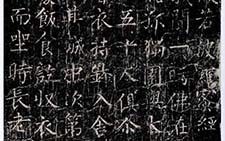 若波羅蜜經
聞一時佛在
孤獨園與大
五十人俱尒
衣持鉢入舍
其城中次第
飯食訖收衣
而坐時長老